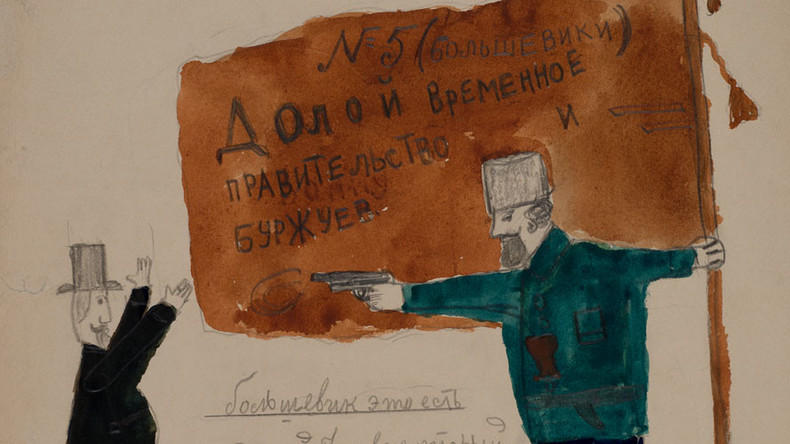 № 5 (большевики)
Долой временное
правительство и
буржуев
большевик это есть